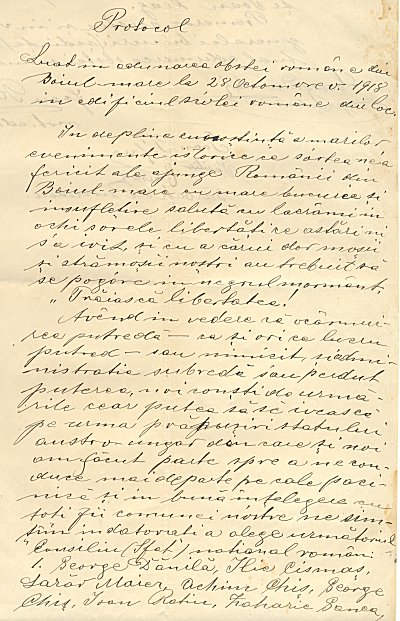 Protocol
Luat in adunarea obstei române din
Boiul-mare la 28 Octomvre v. 1918
in edificiul scolei române din loc.
In deplina cunostintă a marilor
evenimente istorice ce soartea ne a
fericit ale ajunge Românii din
Boiul-mare cu mare bucurie si
insufletire salută cu lacrămi in
ochi sorele libertătii ce astări ni
s'a ivit, si cu a cărui dor mosii
si strămosii nostri au trebuit să
se pogóre in negrul mormant.
"Trăiasca libertatea!
Avênd in vedere că ocârmui-
rea putredă — ca si ori ce lucru
putred — s'au nimicit, si admi-
nistratia subredă s'au perdut
puterea, noi consti de urmă-
rile cear putea să se ivească
pe urma prăpusiri statului
austro-ungar din care si noi
am făcut parte spre a ne con-
duce mai departe pe cale paci-
nică si in bună intelegere cu
toti fii comunei nóstre ne sim-
tim indatorati a alege următorul
Consiliu (Sfat) national român
1. George Dănilă, Ilie Cismaș,
Lazăr Maier, Achim Chiș, George
Chiș, Ioan Ratiu, Zaharie Banea,